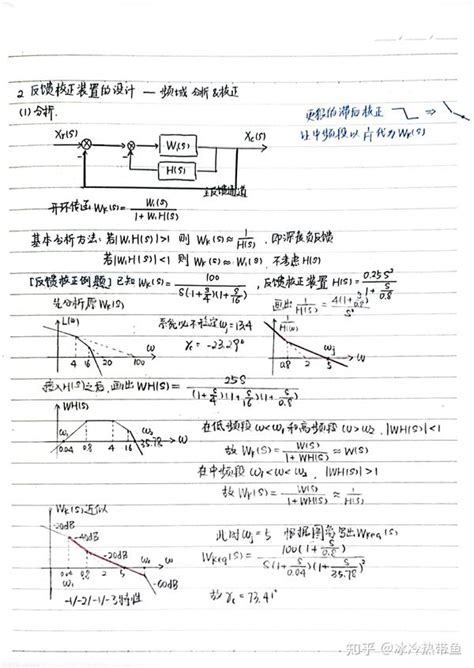 2 反馈校正装置的设计 — 频域分析&校正
(1) 分析.
更像的滞后校正 ⇒
让中频段以后代为Wr(S)
Xr(S)
W1(S)
Xc(S)
H(S)
主反馈通道
开环传函 WK(S)= W1(S) / 1+W1H(S)
基本分析方法: 若|W1H(S)|>1 则 WK(S)≈ 1/H(S) , 即深度负反馈
若|W1H(S)|<1 则 WK(S)≈W1(S), 不考虑H(S)
[反馈校正例题] 已知 WK(S)= 100 / S(1+S/4)(1+S/16) , 反馈校正装置 H(S)= 0.25S² / 1+S/0.8
先分析原WK(S)
画出 1/H(S) = 4(1+S/0.8) / S²
L(ω)
系统必不稳定 ωc=13.4
γc = -23.29°
4 16 20 100 ω
1/H(ω)
0.8 2 5 ω
接入H(S)之后, 画出WH(S)= 25S / (1+S/4)(1+S/16)(1+S/0.8)
WH(S)
ω1 0.04 0.8 4 16 ω2 35.78 ω
在低频段 ω<ω1 和高频段 ω>ω2, |WH(S)|<1
故 WK(S)= W(S) / 1+WH(S) ≈ W(S)
在中频段 ω1<ω<ω2, |WH(S)|>1
故 WK(S)= W(S) / 1+WH(S) ≈ 1/H(S)
WK(S)近似
-20dB
-40dB
-20dB
-60dB
0.04 0.8 2 5 ω
ω1
-1/-2/-1/-3特性
此时 ωc=5 根据图像写出WKeq(S)
WKeq(S)= 100(1+S/0.8) / S(1+S/0.04)(1+S/35.78)²
故 γc = 73.41°
知乎 @冰冷热带鱼